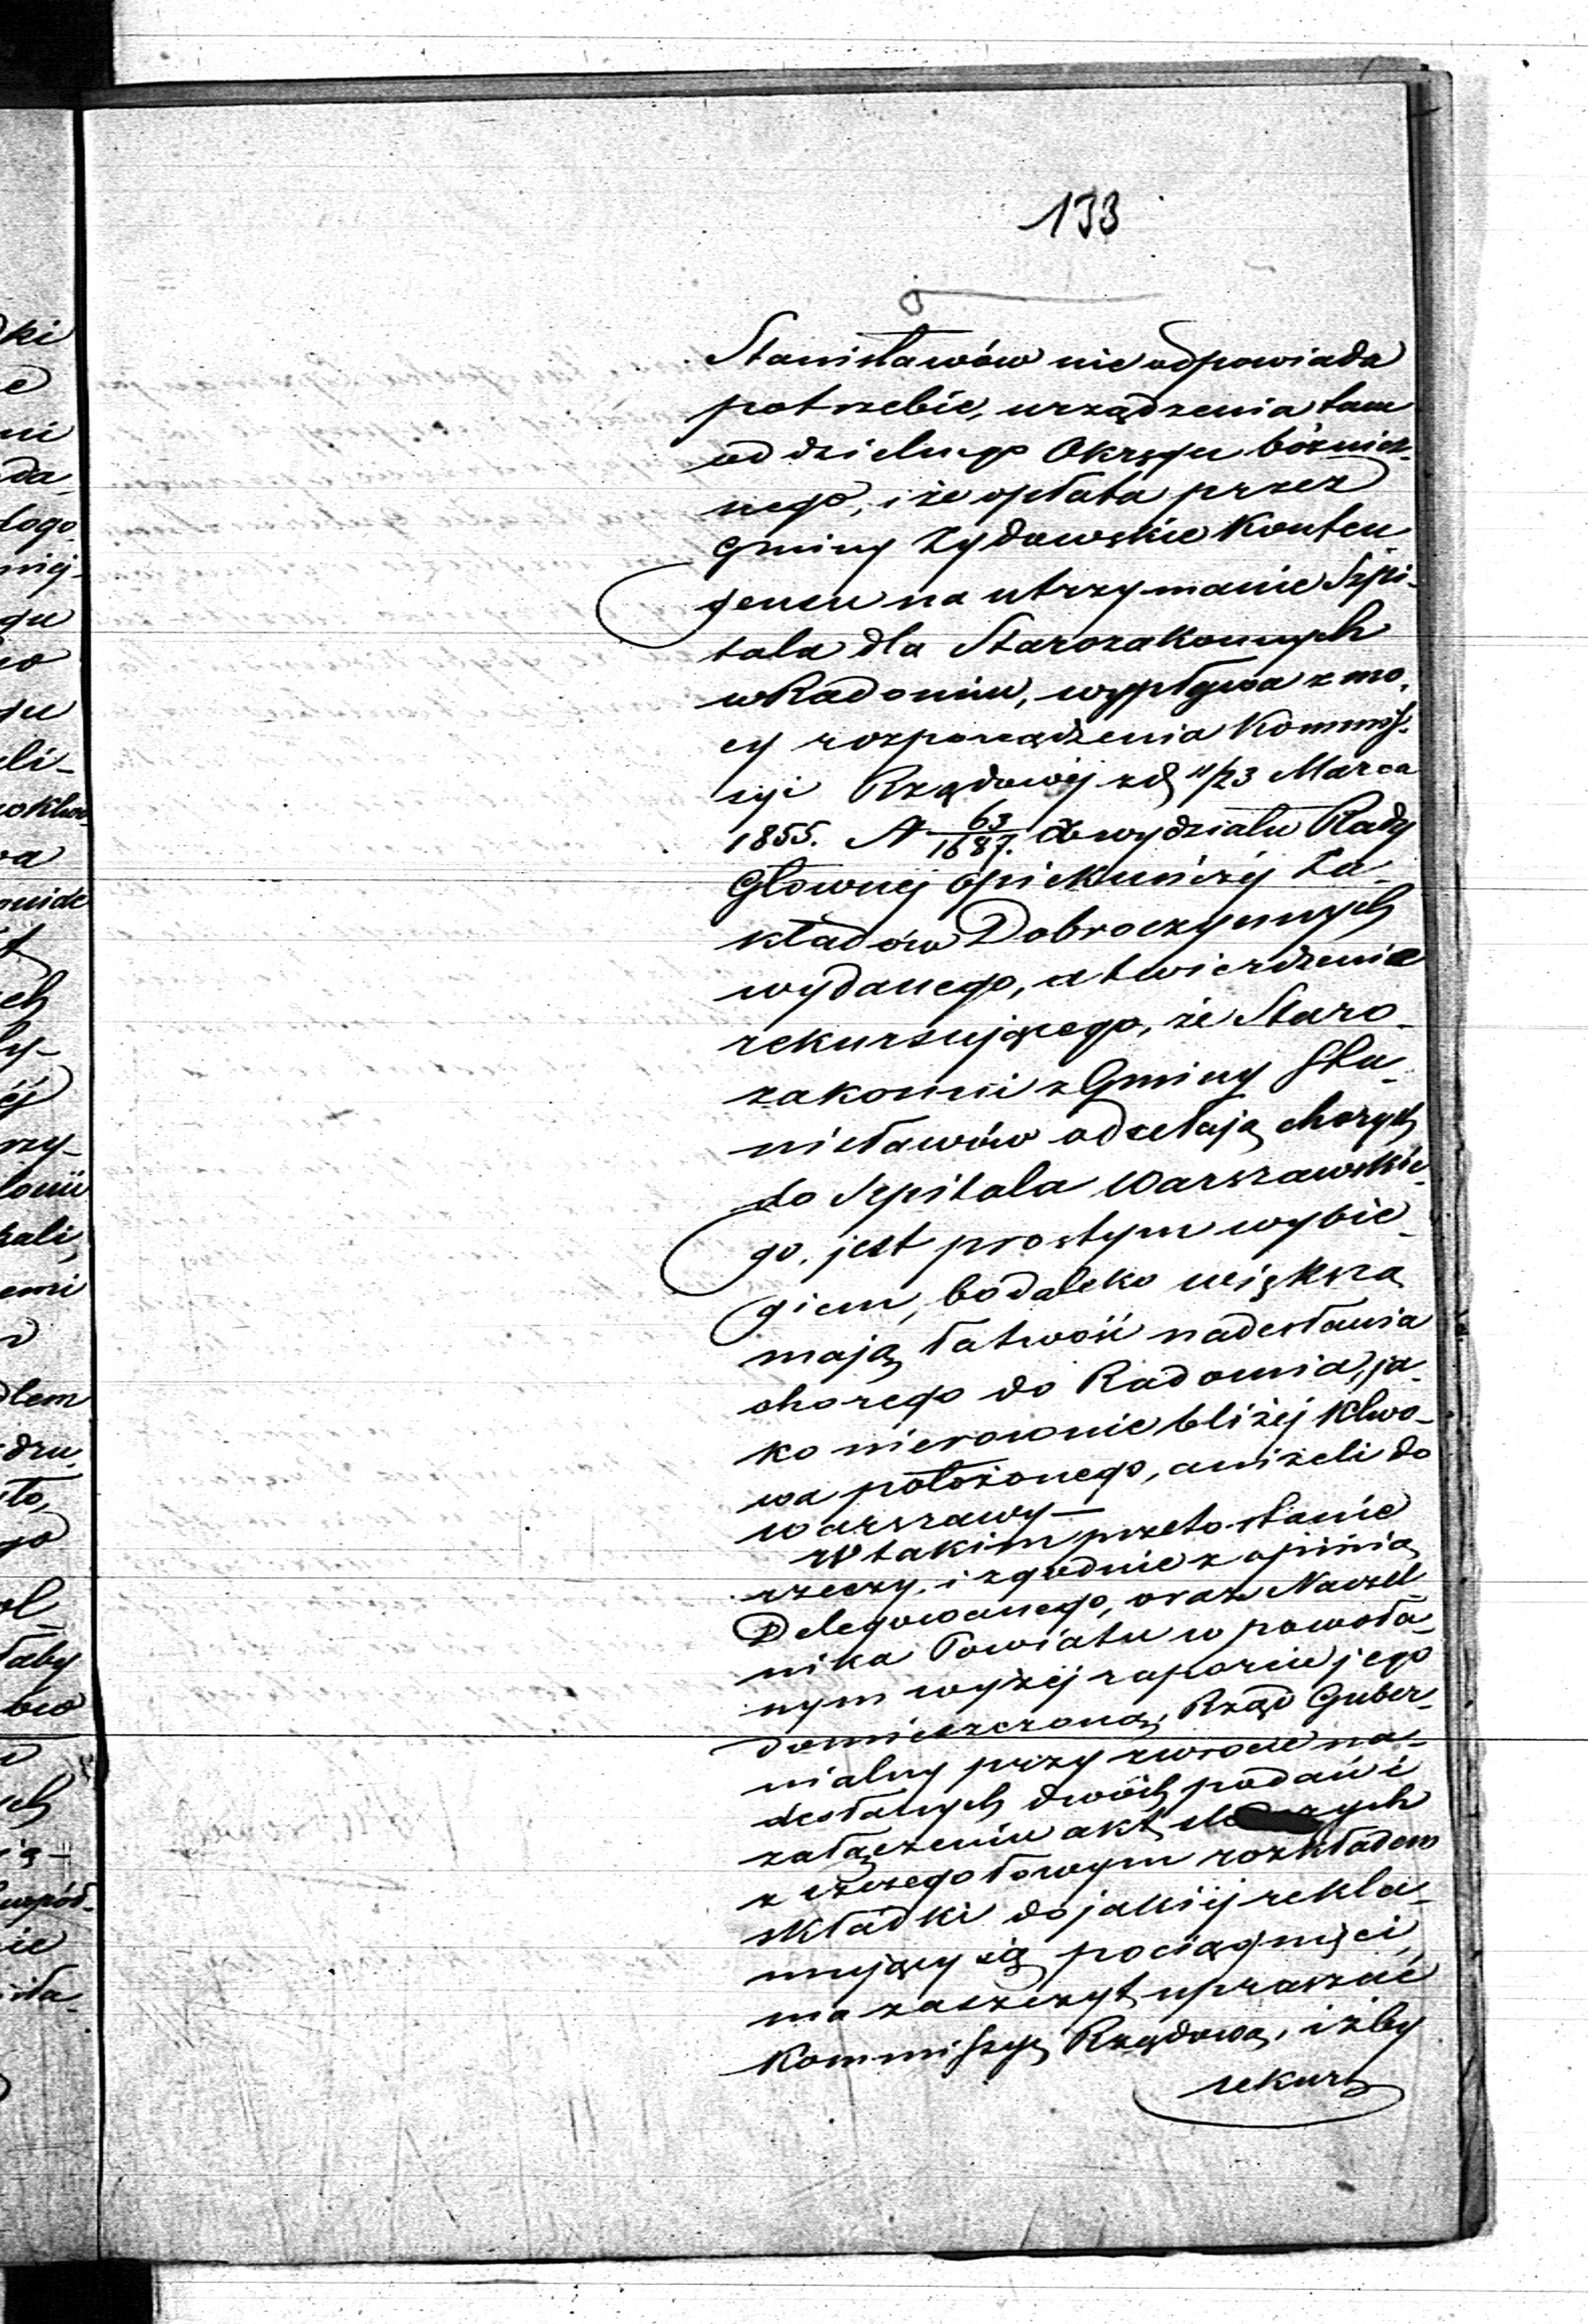 133
Stanisławów nie odpowiada
potrzebie, urządzenia tam
oddzielnego Okręgu bóżnicz-
nego, i że opłata przez
Gminy Żydowskie Konten
gensu na utrzymanie Szpi-
tala dla Starozakonnych
w Radomiu, wypływa z mo-
cy rozporządzenia Kommis-
syi Rządowéj z d. 11/23 Marca
1855. N 63/1687. z wydziału Rady
Głownej Opiekuńczéj Za-
kładów Dobroczynnych
wydanego, a twierdzenie
rekursującego, że Staro-
zakonni z Gminy Sta-
nisławów odsełają chorych
do Szpitala Warszawskie-
go, jest prostym wybie-
giem, bo daleko większą
mają łatwość nadesłania
chorego do Radomia, ja-
ko nierownie bliżéj Klwo-
wa położonego, aniżeli do
Warszawy —
W takim przeto stanie
rzeczy, i zgodnie z opinią
Delegowanego, oraz Naczel-
nika Powiatu w powoła-
nym wyżéj raporcie jego
domieszczoną, Rząd Guber-
nialny przy zwrocie na-
desłanych dwóch podań i
załączeniu akt
z szczegołowym rozkładem
składki do jakiéj rekla-
mujący są pociągnięci,
ma zaszczyt upraszać
Kommissyę Rządową, iżby
rekurs
ki
e
ni
da
togo
niej-
gu
go
gu
li-
a
ch
ly-
éj
rzy-
kali,
emi
dlem
dru-
sto,
go
ol
łaby
owo
ch
ie